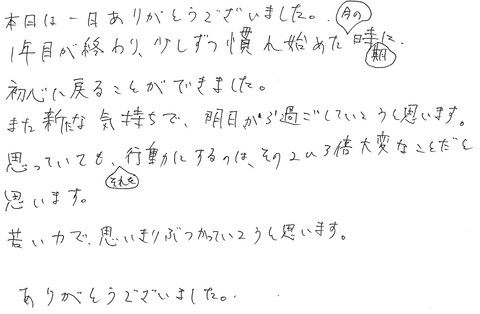 本日は一日ありがとうございました。
1年目が終わり、少しずつ慣れ始めた今の時期に、
初心に戻ることができました。
また新たな気持ちで、明日から過ごしていこうと思います。
思っていても、それを行動にするのは、その2〜3倍大変なことだと
思います。
若い力で、思いきりぶつかっていこうと思います。
ありがとうございました。